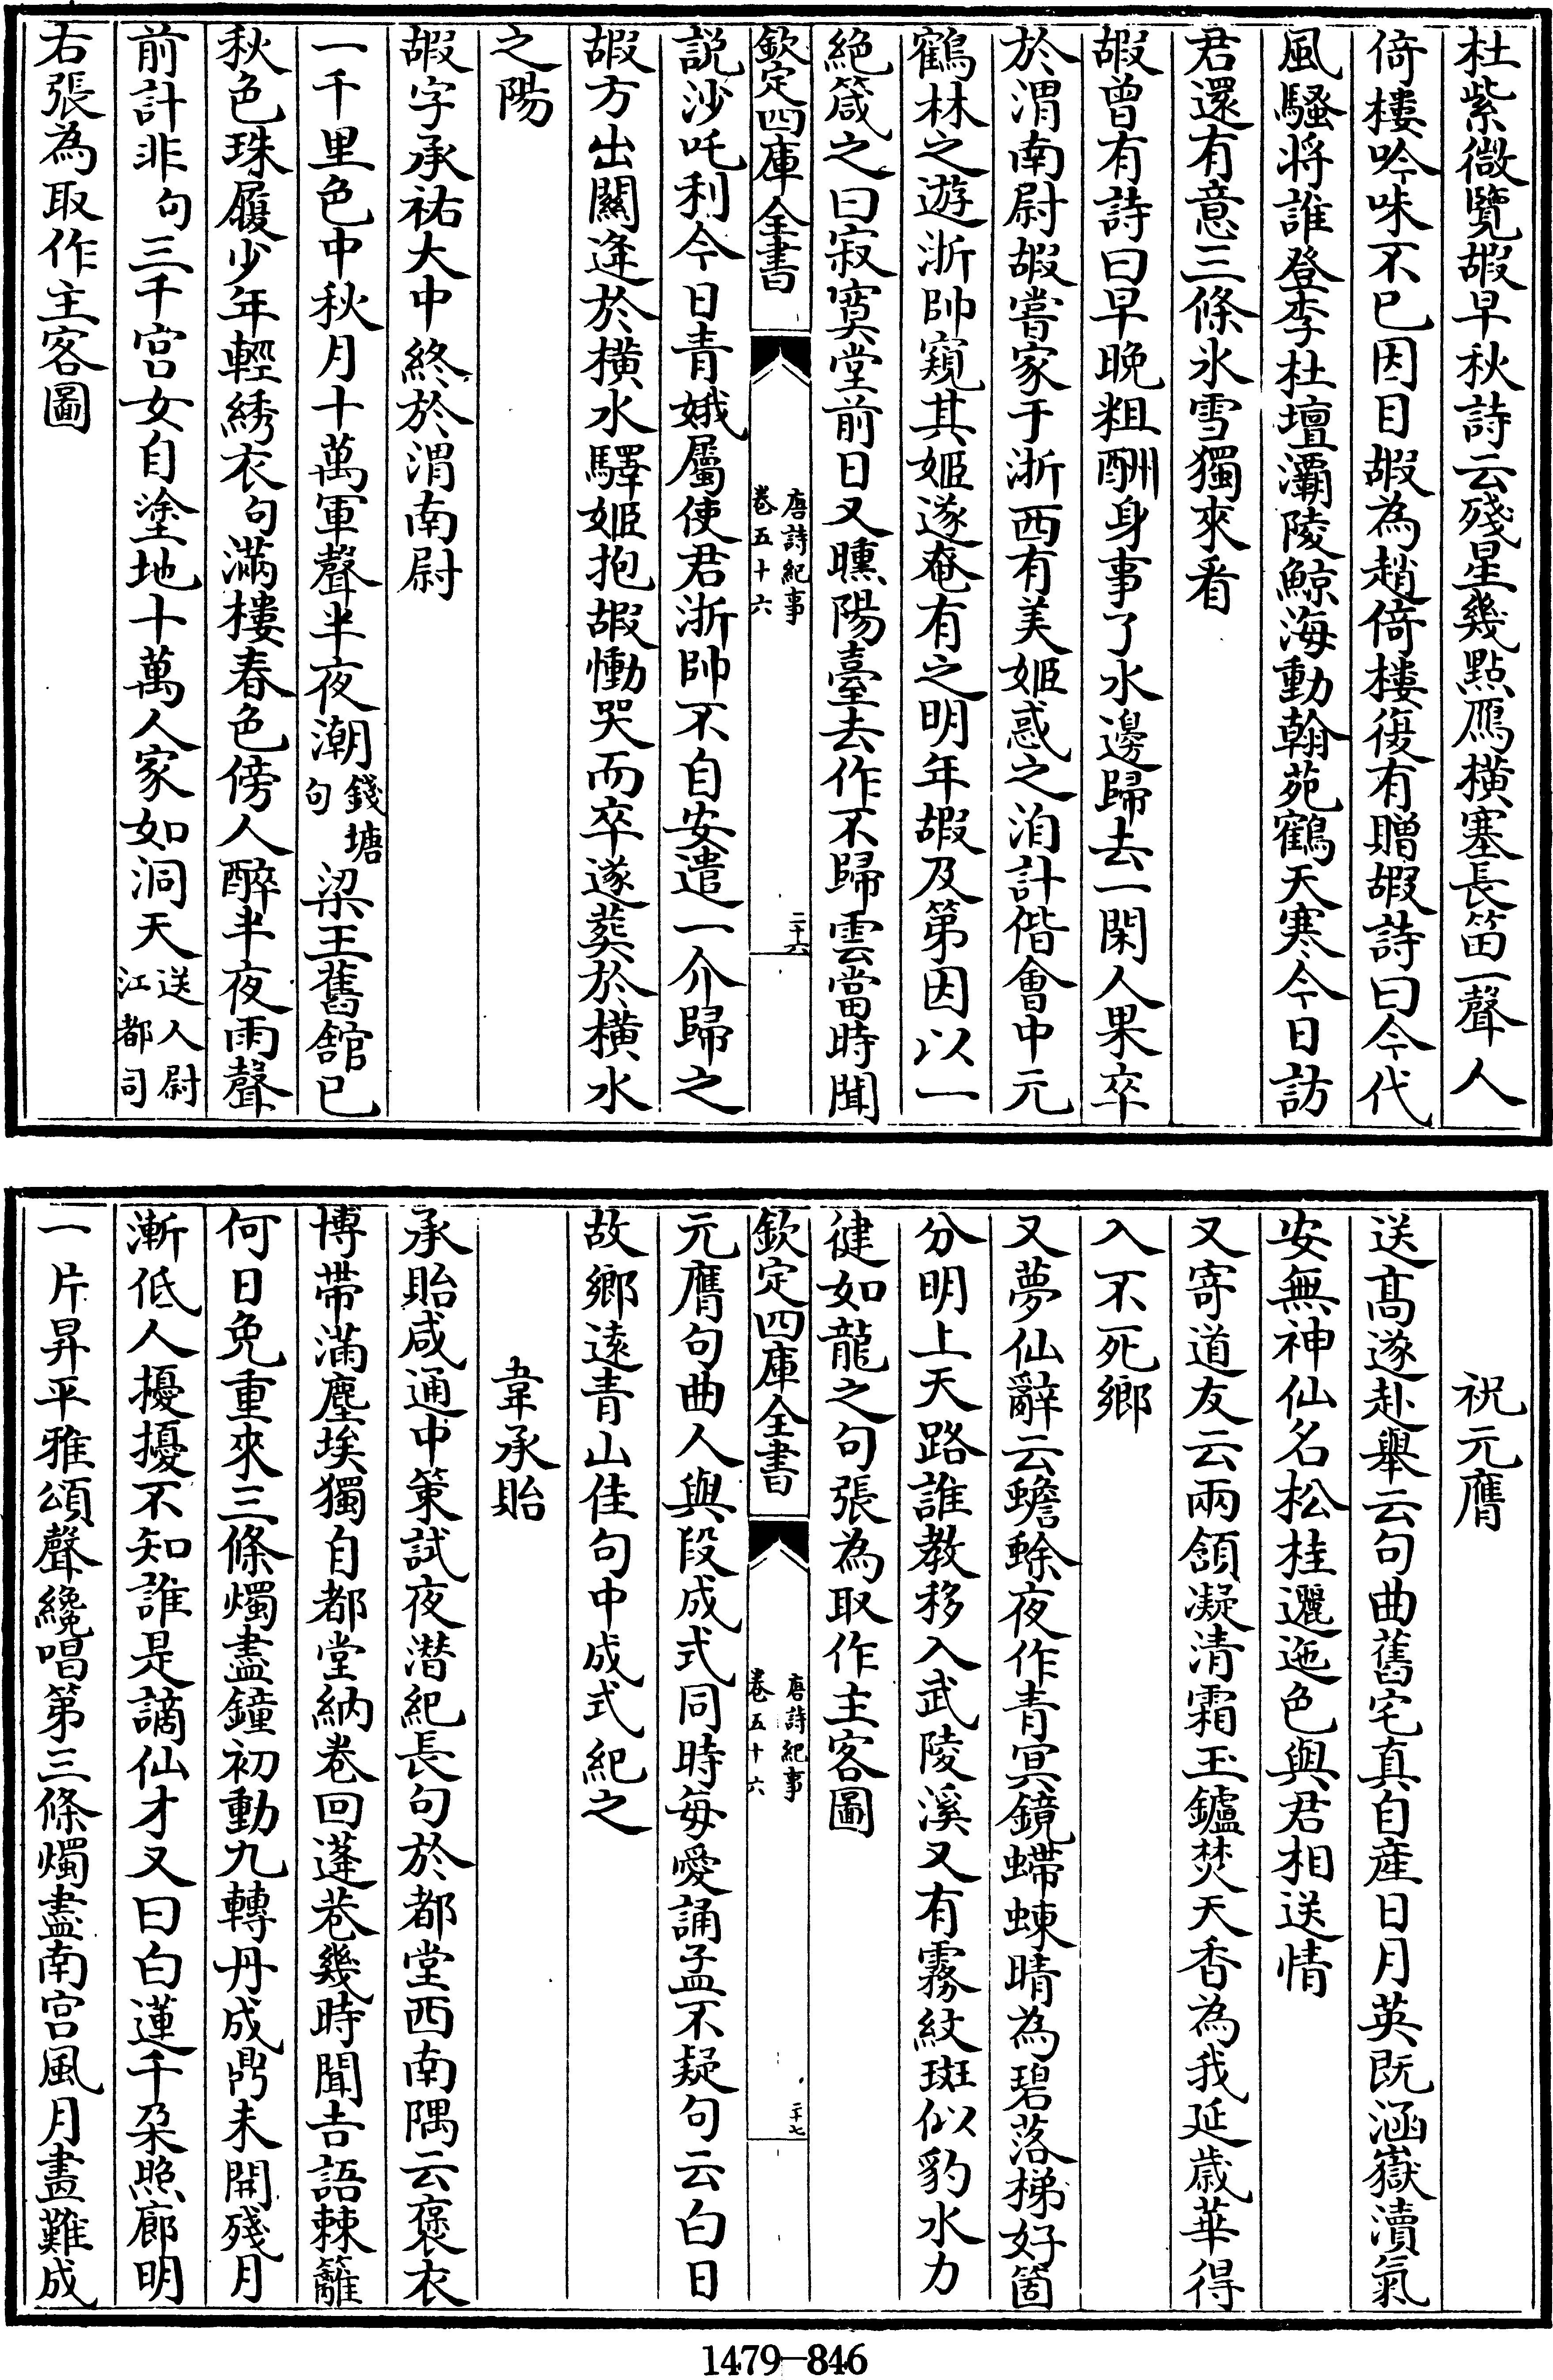 杜紫微覽嘏早秋詩云殘星幾點鴈橫塞長笛一聲人
倚樓吟味不已因目嘏為趙倚樓復有贈嘏詩曰今代
風騷將誰登李杜壇灞陵鯨海動翰苑鶴天寒今日訪
君還有意三條氷雪獨來看
嘏曾有詩曰早晚粗酬身事了水邊歸去一閑人果卒
於渭南尉嘏嘗家于浙西有美姬惑之洎計偕會中元
鶴林之遊浙帥窺其姬遂奄有之明年嘏及第因以一
絶箴之曰寂寞堂前日又曛陽臺去作不歸雲當時聞
欽定四庫全書
唐詩紀事
卷五十六
二十六
説沙吒利今日青娥屬使君浙帥不自安遣一介歸之
嘏方出關逢於橫水驛姬抱嘏慟哭而卒遂葬於橫水
之陽
嘏字承祐大中終於渭南尉
一千里色中秋月十萬軍聲半夜潮錢塘句梁王舊舘已
秋色珠履少年輕綉衣句滿樓春色傍人醉半夜雨聲
前計非句三千宫女自塗地十萬人家如洞天送人尉江都司
右張為取作主客圖
祝元膺
送髙遂赴舉云句曲舊宅真自産日月英既涵嶽瀆氣
安無神仙名松桂邐迤色與君相送情
又寄道友云兩頷凝清霜玉鑪焚天香為我延歳華得
入不死鄉
又夢仙辭云蟾蜍夜作青冥鏡螮蝀晴為碧落梯好箇
分明上天路誰教移入武陵溪又有霧紋斑似豹水力
健如龍之句張為取作主客圖
欽定四庫全書
唐詩紀事
卷五十六
二十七
元膺句曲人與段成式同時每愛誦孟不疑句云白日
故鄉遠青山佳句中成式紀之
韋承貽
承貽咸通中策試夜潛紀長句於都堂西南隅云褒衣
博帶滿塵埃獨自都堂納卷回蓬巷幾時聞吉語棘籬
何日免重來三條燭盡鐘初動九轉丹成鼎未開殘月
漸低人擾擾不知誰是謫仙才又曰白蓮千朵照廊明
一片昇平雅頌聲纔唱第三條燭盡南宫風月畫難成
1479—846